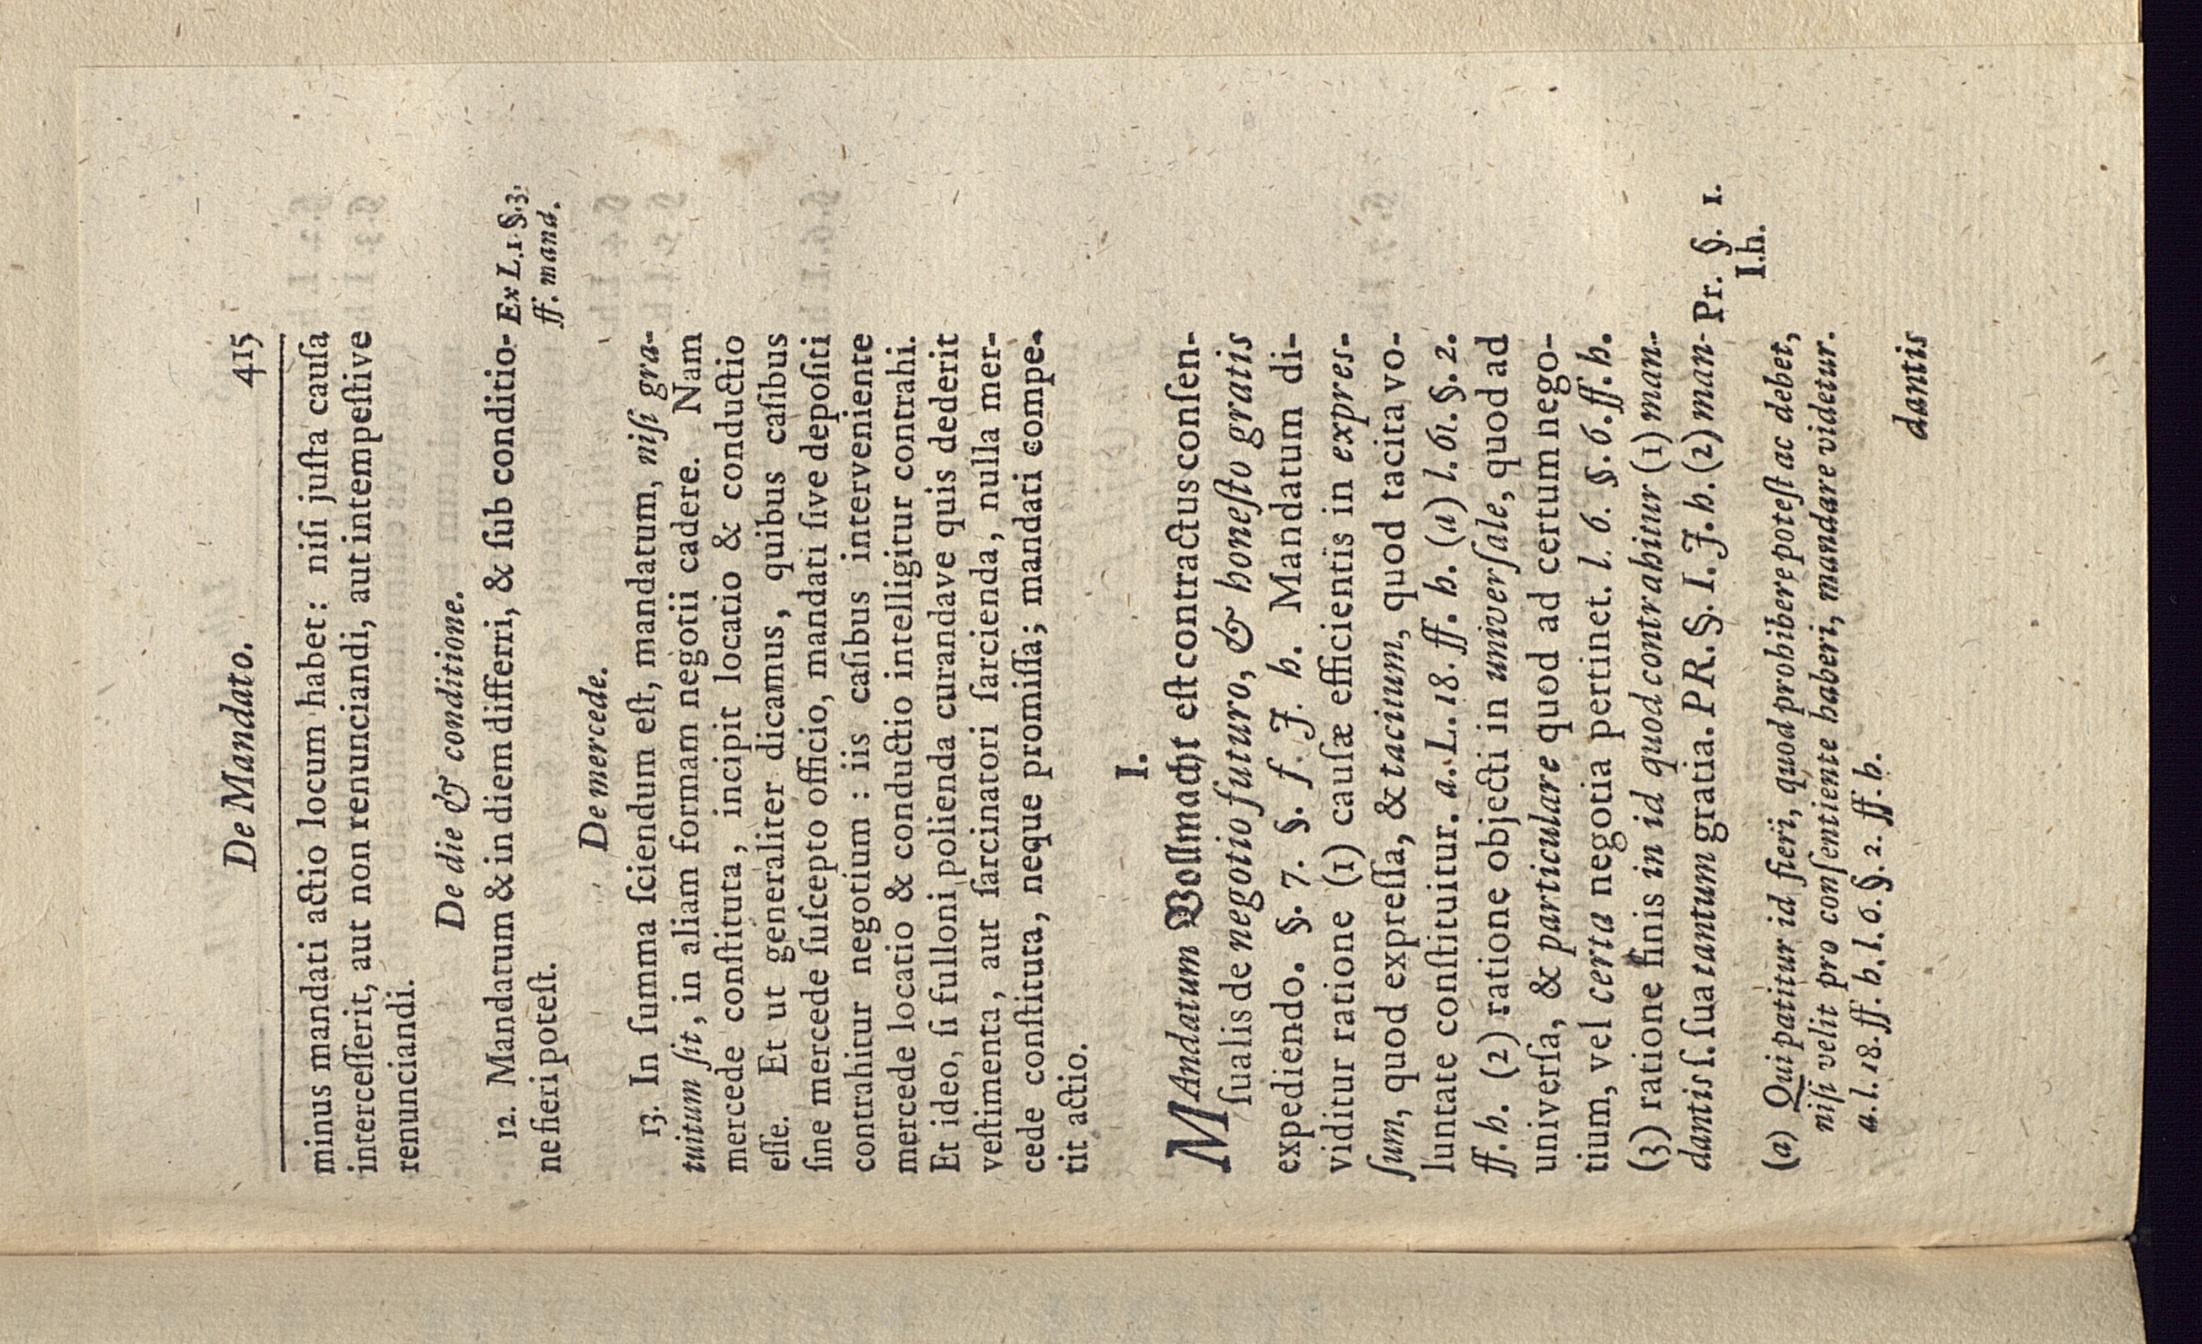 De Mandato. 415
minus mandati actio locum habet: niſi juſta cauſa
interceſſerit, aut non renunciandi, aut intempeſtive
renunciandi.
De die & conditione.
12. Mandatum & in diem differri, & ſub conditio- Ex L.1. §.3.
ne fieri poteſt. ff. mand.
De mercede.
13. In ſumma ſciendum eſt, mandatum, niſi gra-
tuitum ſit, in aliam formam negotii cadere. Nam
mercede conſtituta, incipit locatio & conductio
eſſe. Et ut generaliter dicamus, quibus caſibus
ſine mercede ſuſcepto officio, mandati ſive depoſiti
contrahitur negotium : iis caſibus interveniente
mercede locatio & conductio intelligitur contrahi.
Et ideo, ſi fulloni polienda curandave quis dederit
veſtimenta, aut ſarcinatori ſarcienda, nulla mer-
cede conſtituta, neque promiſſa; mandati compe-
tit actio.
I.
MAndatum Vollmacht eſt contractus conſen-
ſualis de negotio futuro, & honeſto gratis
expediendo. §. 7. §. f. J. h. Mandatum di-
viditur ratione (1) cauſæ efficientis in expreſ-
ſum, quod expreſſa, & tacitum, quod tacita vo-
luntate conſtituitur. a. L. 18. ff. h. (a) l. 61. §. 2.
ff. h. (2) ratione objecti in univerſale, quod ad
univerſa, & particulare quod ad certum nego-
tium, vel certa negotia pertinet. l. 6. §. 6. ff. h.
(3) ratione finis in id quod contrahitur (1) man-
dantis ſ. ſua tantum gratia. PR. §. I. J. h. (2) man- Pr. §. 1.
I.h.
(a) Qui patitur id fieri, quod prohibere poteſt ac debet,
niſi velit pro conſentiente haberi, mandare videtur.
a. l. 18. ff. h. l. 6. §. 2. ff. h.
dantis